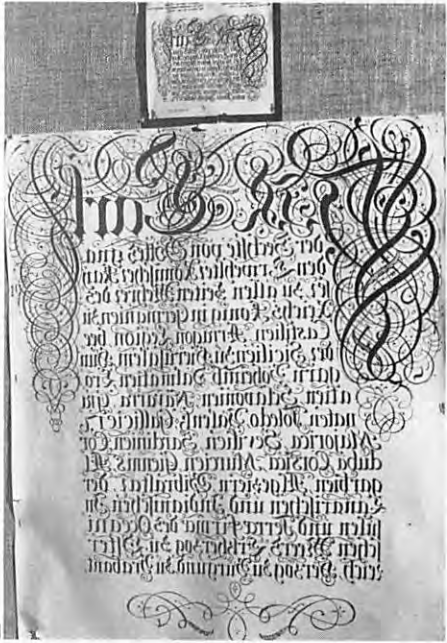 Wir Carl
der Sechste von Gottes gna,
den Erwehlter Römischer Kay
ser zu allen Zeiten Mehrer des
Reichs, König in Germanien zu
Castilien Arragon Legion bey
der Sicilien zu Hierusalem Hun
garn Boheimb Dalmatien Cro
atien Sclavonien Navarra gra
naten Toledo Valentz Gallicien
Majorica Sevilien Sardinien Cor
duba Corsica Murcien Giennis Al
garbien Algeziern Gibraltar der
Canarischen und Indianischen In
sulen und Terrae Firmae des Oceani
schen Meers Ertzherzog zu Öster
reich, Herzog zu Burgund zu Brabant